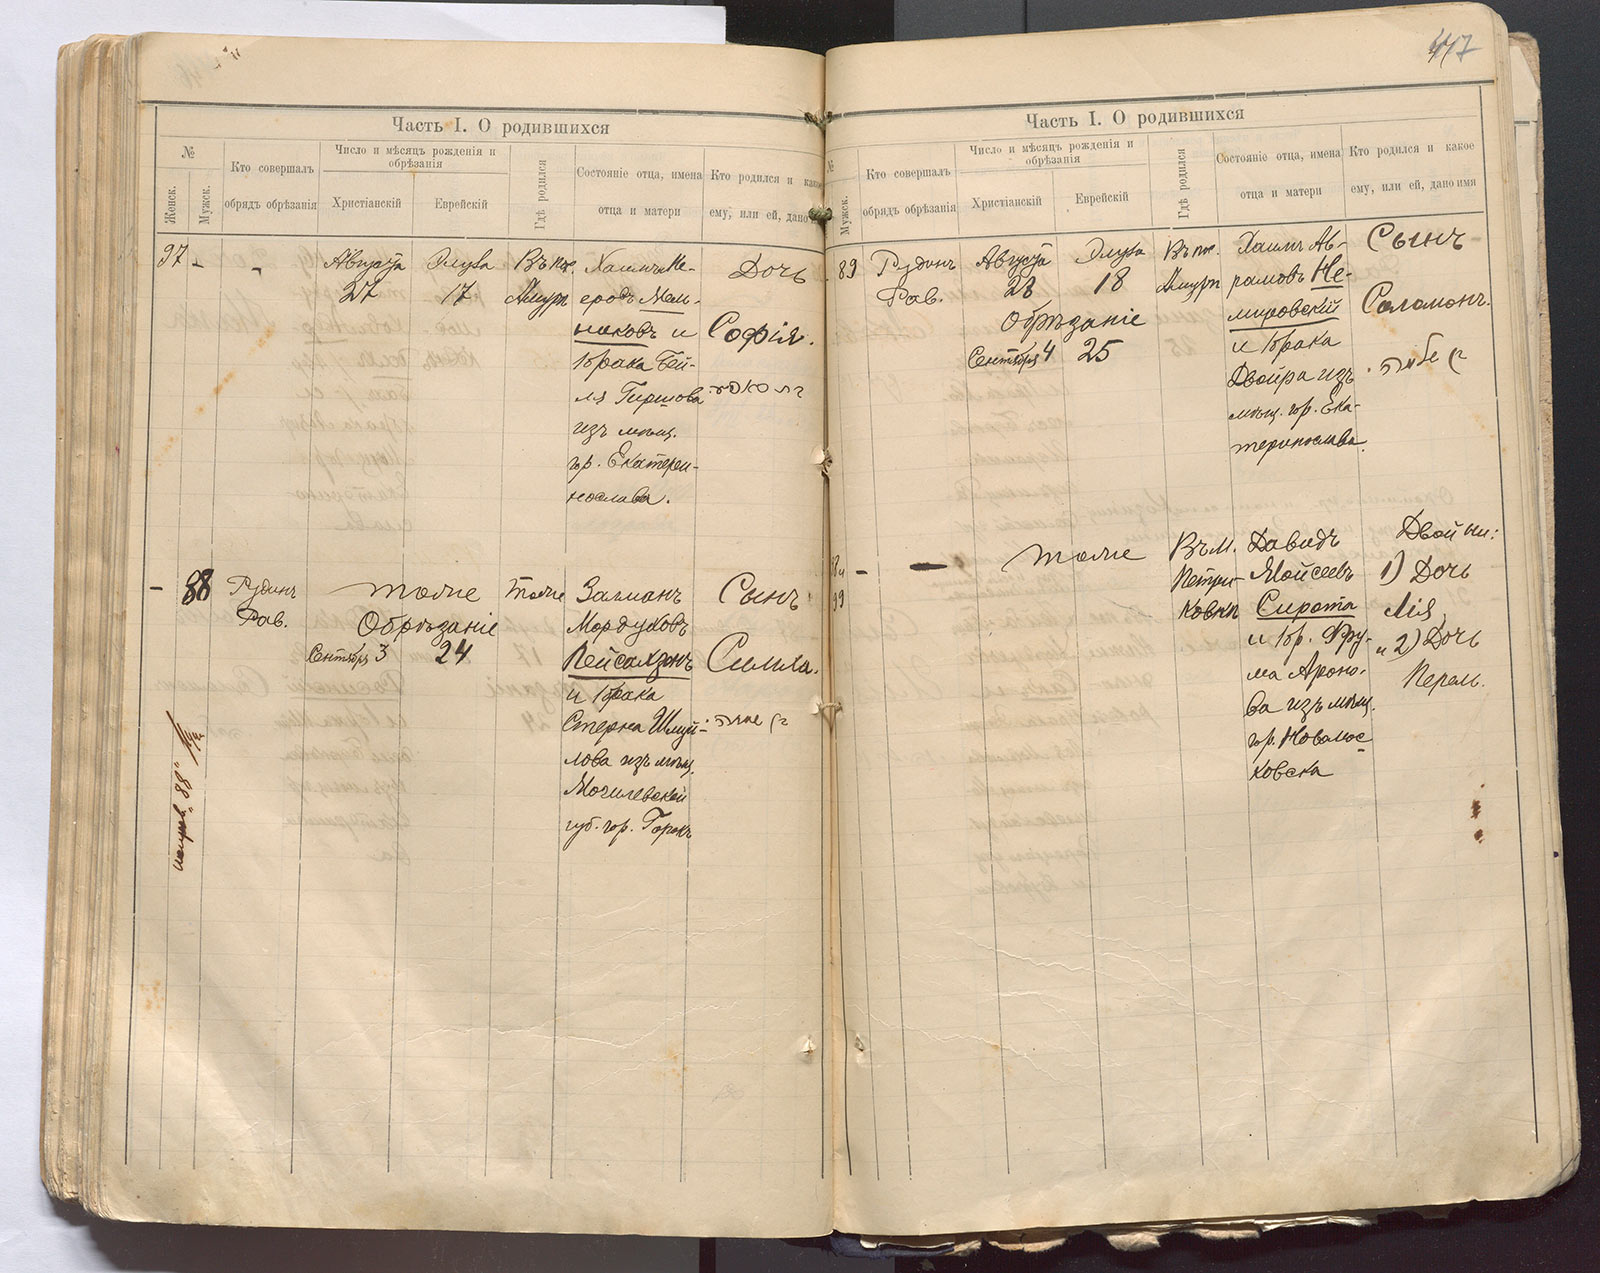 Часть I. О родившихся
№
Женск.
Мужск.
Кто совершалъ
обрядъ обрѣзанія
Число и мѣсяцъ рожденія и
обрѣзанія
Христіанскій
Еврейскій
Гдѣ родился
Состояніе отца, имена
отца и матери
Кто родился и како
ему, или ей, дано
97
-
-
Августа
27
Элула
17
Въ пос.
Амурѣ
Хаимъ Ме-
еровъ Мель-
никовъ и
1 брака Бей-
ля Гиршова
изъ мѣщ.
гор. Екатери-
нослава.
Дочь
Софія.
-
88
Рудинъ
Рав.
тоже
Обрѣзаніе
Сентября 3
24
тоже
Залманъ
Мордуховъ
Пейсахзонъ
и 1 брака
Стерна Шмуй-
лова изъ мѣщ.
Могилевской
губ. гор. Горокъ
Сынъ
Симха.
"88"
447
Часть I. О родившихся
№
Мужск.
Кто совершалъ
обрядъ обрѣзанія
Число и мѣсяцъ рожденія и
обрѣзанія
Христіанскій
Еврейскій
Гдѣ родился
Состояніе отца, имена
отца и матери
Кто родился и какое
ему, или ей, дано имя
89
Рудинъ
Рав.
Августа
28
Элула
18
Обрѣзаніе
Сентября 4
25
Въ пос.
Амурѣ
Хаимъ Ав-
рамовъ Не-
мировскій
и 1 брака
Двойра изъ
мѣщ. гор. Ека-
теринослава.
Сынъ
Соломонъ.
99
-
-
тоже
Въ м.
Петри-
ковкѣ
Давидъ
Мойсеевъ
Сирота
и 1 бр. Фру-
ма Ароно-
ва изъ мѣщ.
гор. Новомос-
ковска
Двойни:
1) Дочь
Лія
и 2) Дочь
Перль.